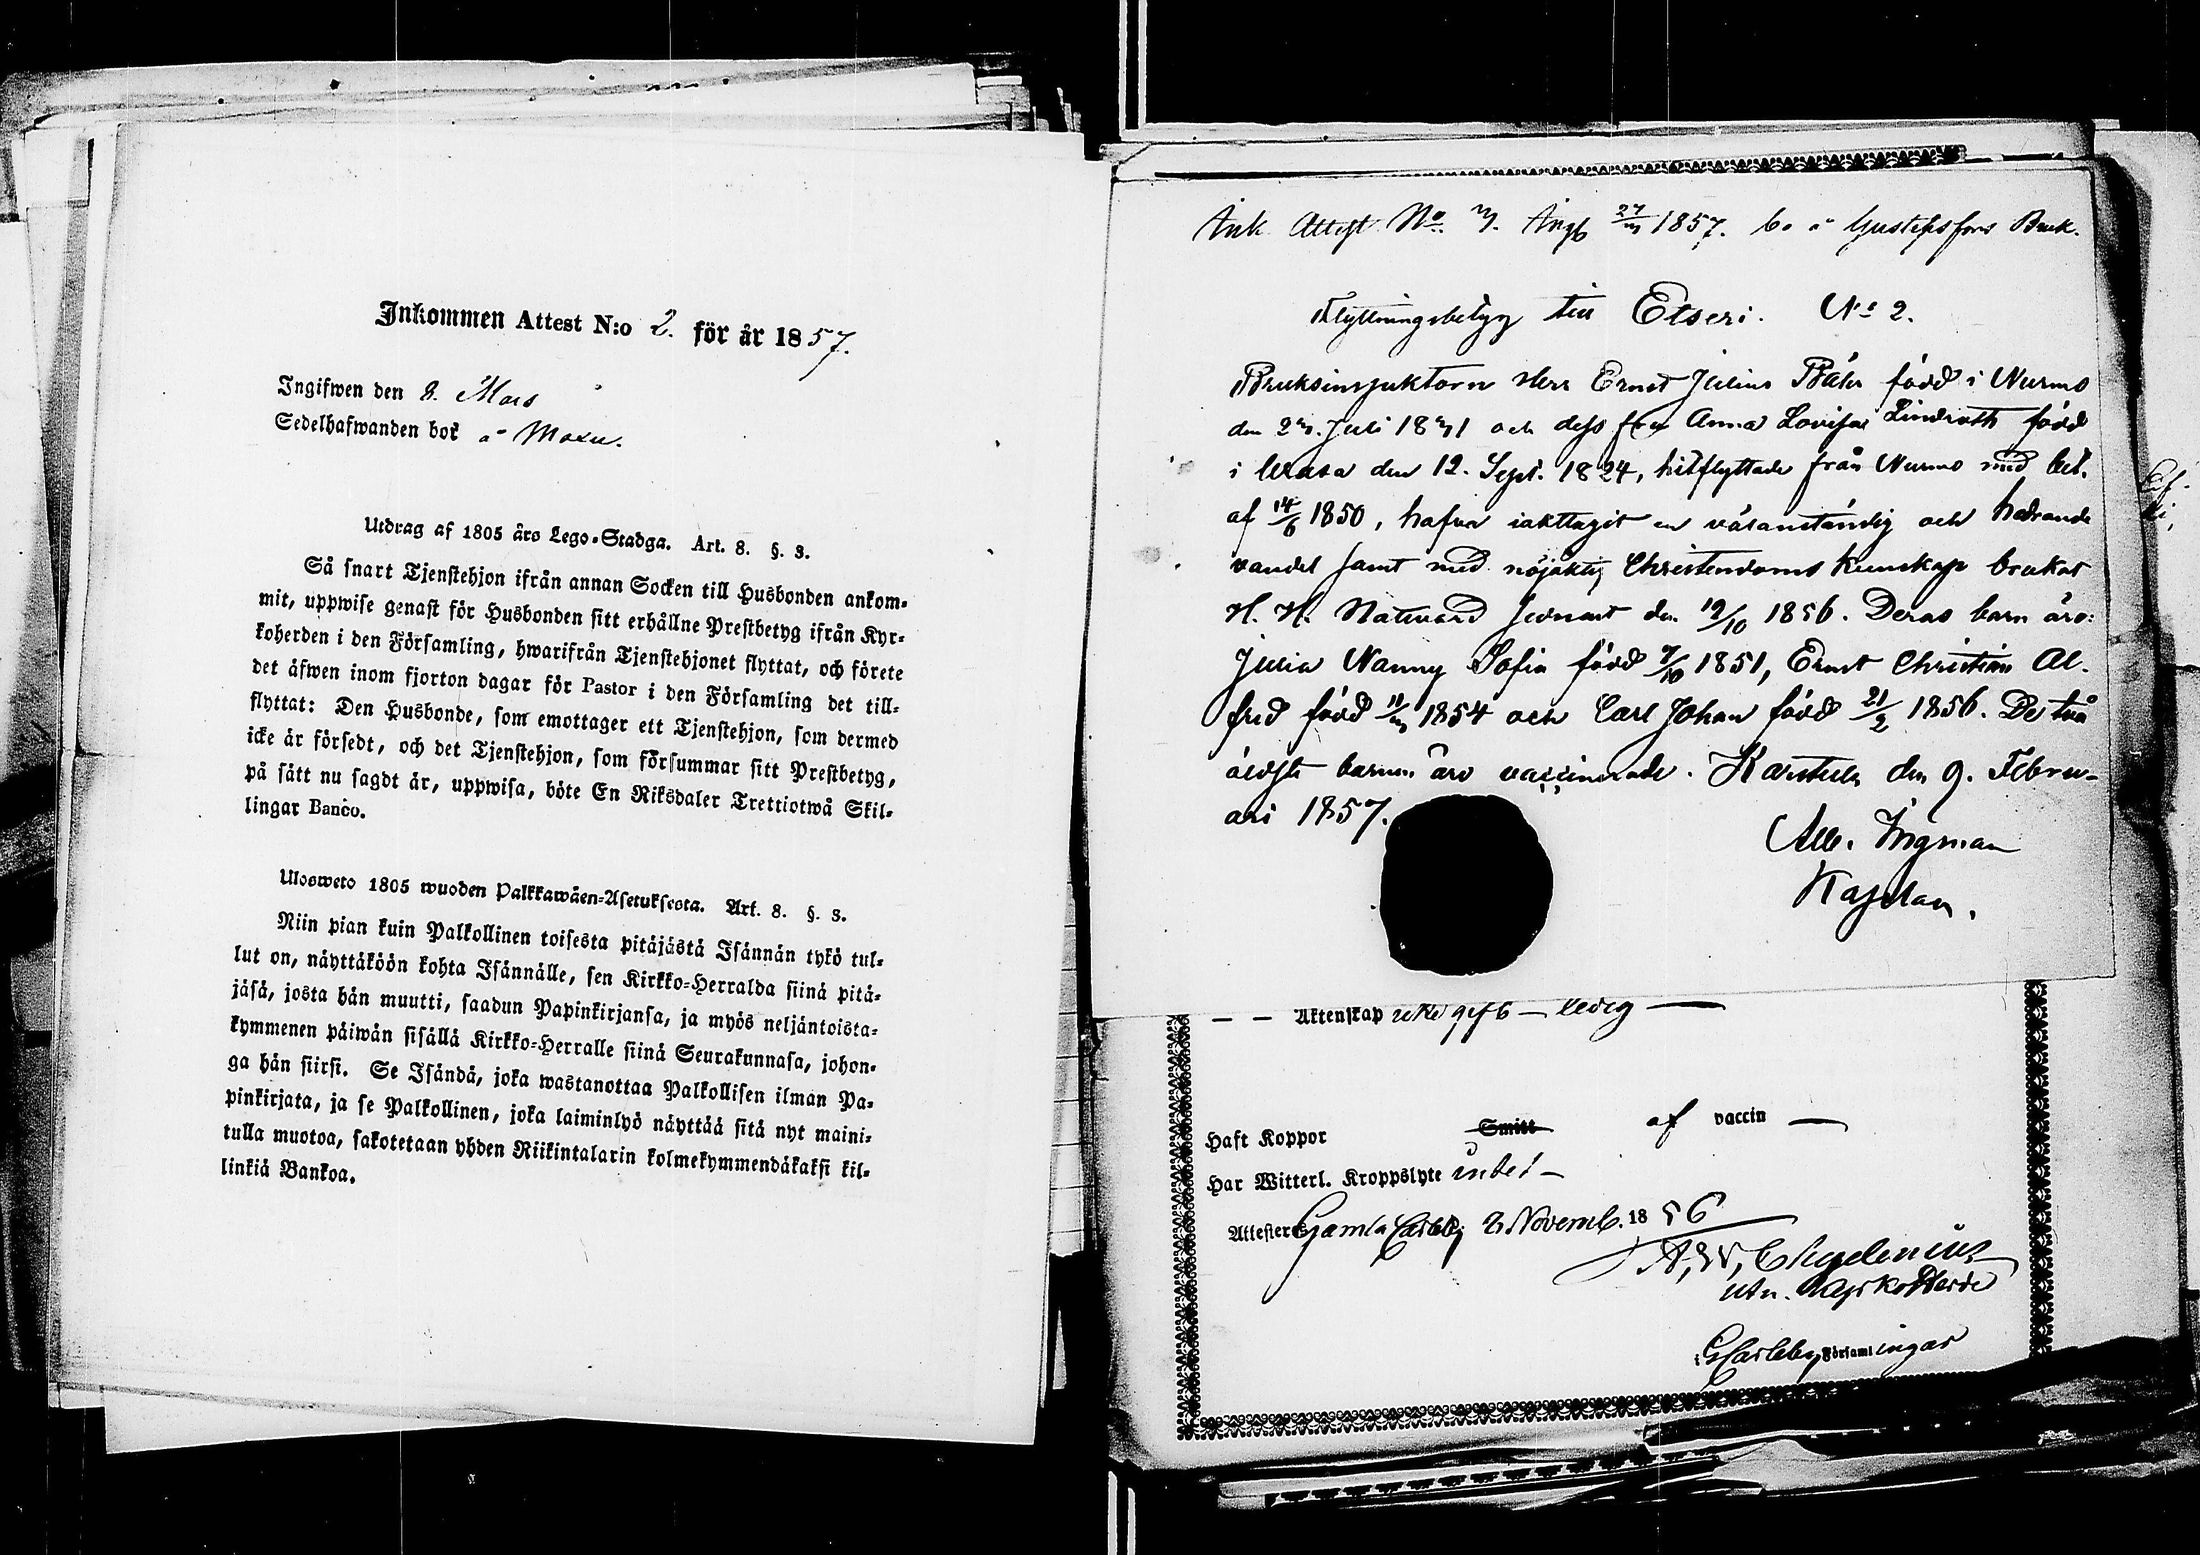 Inkommen Attest N:o 2. för år 1857.
Ingifwen den 8. Mars
Sedelhafwanden bor å
Utdrag af 1805 års Lego-Stadga. Art. 8. §. 3.
Så snart Tjenstehjon ifrån annan Socken till Husbonden ankom-
mit, uppwise genast för Husbonden sitt erhållne Prestbetyg ifrån Kyr-
koherden i den Församling, hwarifrån Tjenstehjonet flyttat, och förete
det äfwen inom fjorton dagar för Pastor i den Församling det till-
flyttat: Den Husbonde, som emottager ett Tjenstehjon, som dermed
icke är försedt, och det Tjenstehjon, som försummar sitt Prestbetyg,
på sätt nu sagdt är, uppwisa, böte En Riksdaler Trettiotwå Skil-
lingar Banco.
Ulosweto 1805 wuoden Palkkawäen-Asetuksesta. Art. 8. §. 3.
Niin pian kuin Palkollinen toisesta pitäjästä Isännän tykö tul-
lut on, näyttäköön kohta Isännälle, sen Kirkko-Herralda siinä pitä-
jäsä, josta hän muutti, saadun Papinkirjansa, ja myös neljäntoista-
kymmenen päiwän sisällä Kirkko-Herralle siinä Seurakunnasa, johon-
ga hän siirsi. Se Isändä, joka wastanottaa Palkollisen ilman Pa-
pinkirjata, ja se Palkollinen, joka laiminlyö näyttää sitä nyt maini-
tulla muotoa, sakotetaan yhden Riikintalarin kolmekymmendäkaksi kil-
linkiä Bankoa.
Ink. Attest No 3. Ingb 27/3 1857. bo å Gustafsfors Bruk.
Flyttningsbetyg till Etseri. No 2.
Bruksinspektorn Herr Ernst Julius född i Nurmo
den 23. Juli 1831 och dess fru Anna Lovisa Lindroth född
i Wasa den 12. Sept. 1824, hitflyttade från Nurmo med bet.
af 14/6 1850, hafva iakttagit en väranständig och hedrande
vandel samt med nöjaktig Christendoms kunskap brukat
H. H. Nattvard sednast den 19/10 1856. Deras barn äro:
Julia Nanny Sofia född 7/10 1851, Ernst Christian Al-
fred född 11/3 1854 och Carl Johan född 21/2 1856. De två
äldste barnen äro vaccinerade. Karstula den 9. Febru-
ari 1857.
Alb. Ingman
Kapelan.
— — Äktenskap icke gift — ledig —
Haft Koppor Smitt af vaccin —
Har Witterl. Kroppslyte intet —
Attesterar Gamla Carleby 3 Novemb. 1856
A, W, Chydenius
utn. Kyrkoherde
i GCarleby Församlingar